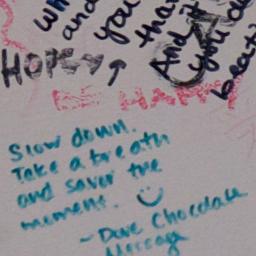 wh
and
you
tha
And it
you
breat
HOPE
BE HAPPY
Slow down.
Take a breath
and saver the
moment.
~ Dove Chocolate
Message